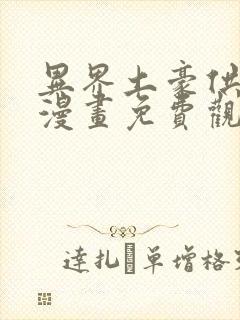 異界土豪供
漫畫免費觀
達扎 單增格